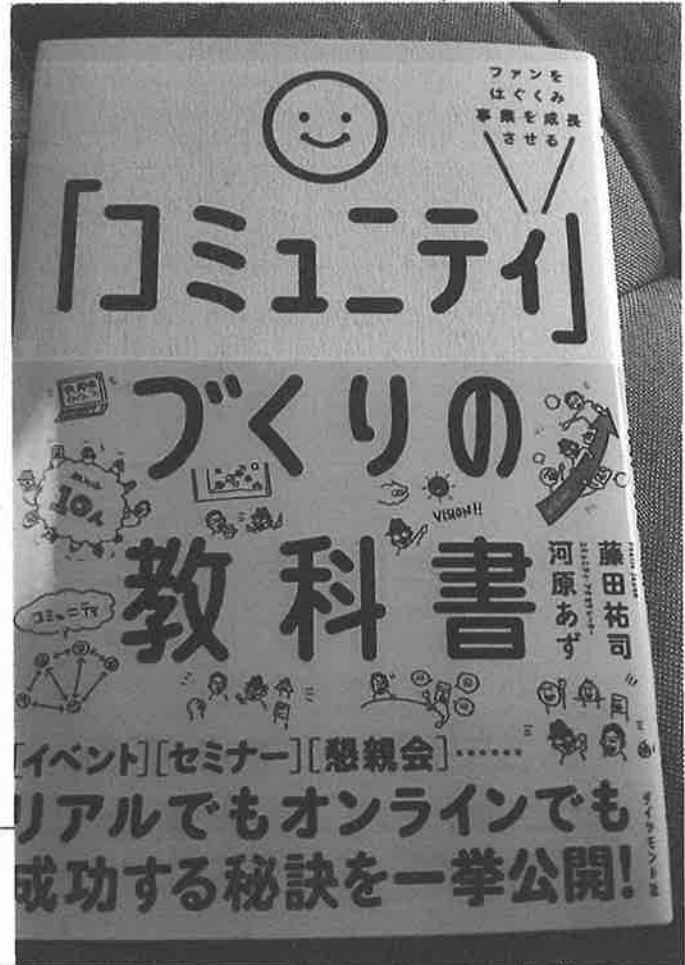 ファンを
はぐくみ
事業を成長
させる
「コミュニティ」
づくりの
教科書
10人
VISION!!
コミュニティ
藤田祐司
河原あず
[イベント][セミナー][懇親会]……
リアルでもオンラインでも
成功する秘訣を一挙公開!
ダイヤモンド社